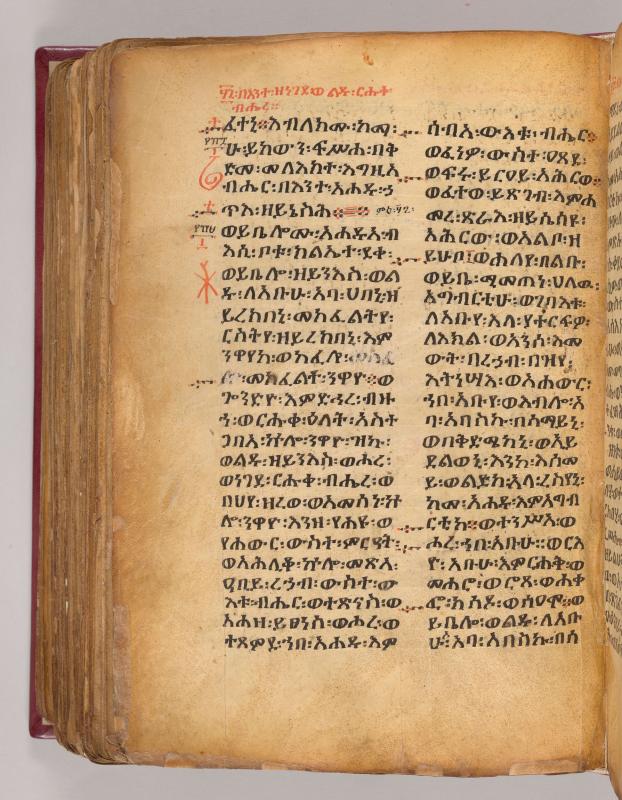 በእንተ፡ዘነገደ፡ወልዱ፡ርሑቀ
ብሔረ።
ፈትኒ።እብለክሙ፡ከማ፡
ሁ፡ይከውን፡ፍሥሐ፡በቅ
ድመ፡መላእክተ፡እግዚአ
ብሔር፡በእንተ፡አሐዱ፡ኃ
ጥእ፡ዘይኔስሕ
ወይቤሎሙ፡አሐዱ፡ብ
እሲ፡ቦቱ፡ክልኤተ፡ደቀ፡
ወይቤሎ፡ዘይንእስ፡ወል
ዱ፡ለአቡሁ፡አባ፡ሀበኒ፡ዘ
ይረክበኒ፡መክፈልትየ፡
ርስትየ፡ዘይረክበኒ፡እም
ንዋየከ፡ወከፈሎ፡
መክፈልተ፡ንዋዮ።ወ
ጐንድዮ፡እምድኅረ፡ብዙ
ኅ፡ወርሑቅ፡ዕለት፡አስተ
ጋብአ፡ኵሎ፡ንዋዮ፡ዝኩ፡
ወልዱ፡ዘይንእስ፡ወሖረ፡
ወነገደ፡ርሑቀ፡ብሔረ፡ወ
በህየ፡ዘረወ፡ወአመሰነ፡ኵ
ሎ፡ንዋዮ፡እንዘ፡የሐዩ፡ወ
የሐውር፡ውስተ፡ምርዓት፡
ወአሕሊቆ፡ኵሎ፡መጽአ፡
ዓቢይ፡ረኃብ፡ውስተ፡ው
እቱ፡ብሔር፡ወተጽናስ፡ወ
አሐዘ፡ይፀነስ፡ወሖረ፡ወ
ተጸምደ፡ኀበ፡አሐዱ፡እም
ሰብአ፡ውእቱ፡ብሔር
ወፈነዎ፡ውስተ፡ዐጸደ፡
ወፍሩ፡ይርዐይ፡አሕርወ
ወፈተወ፡ይጽገብ፡እምሐ
መረ፡ጽራእ፡ዘይሴስዩ፡
አሕርው፡ወአልቦ፡ዘ
ይሁቦ።ወሐለየ፡በልቡ፡
ወይቤ፡ሚመጠን፡ሀለዉ፡
አግብርቲሁ፡ወገባእቱ፡
ለአቡየ፡እለ፡ያተርፍዎ፡
ለእክል፡ወአንሰ፡እመ
ውት፡በረኃብ፡በዝየ፡
እትነሣእ፡ወአሐውር፡
ኀበ፡አቡየ፡ወእብሎ፡አ
ባ፡አበስኩ፡በሰማይኒ፡
ወበቅድሜከኒ፡ወኢይ
ደልወኒ፡እንከ፡እሰመ
ይ፡ወልድከ፡አላ፡ረስየኒ፡
ከመ፡አሐዱ፡እምአግብ
ርቲከ።ወተንሥአ፡ወ
ሖረ፡ኀበ፡አቡሁ።ወርእ
ዮ፡አቡሁ፡እምርሑቅ፡ወ
መሐሮ፡ወሮጸ፡ወሐቀ
ፎ፡ክሳዶ፡ወሰዐሞ።ወ
ይቤሎ፡ወልዱ፡ለአቡ
ሁ፡አባ፡አበስኩ፡በሰ